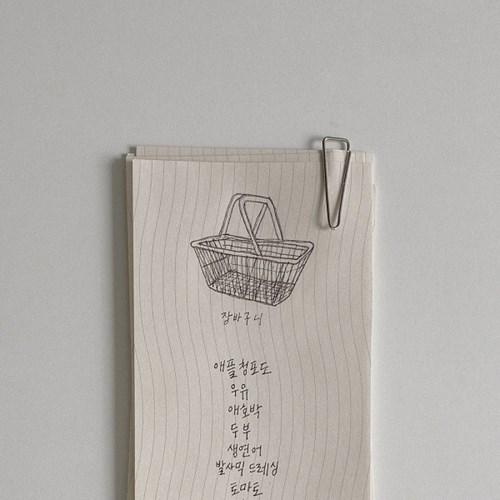 장바구니
애플청포도
우유
애호박
두부
생연어
발사믹 드레싱
토마토